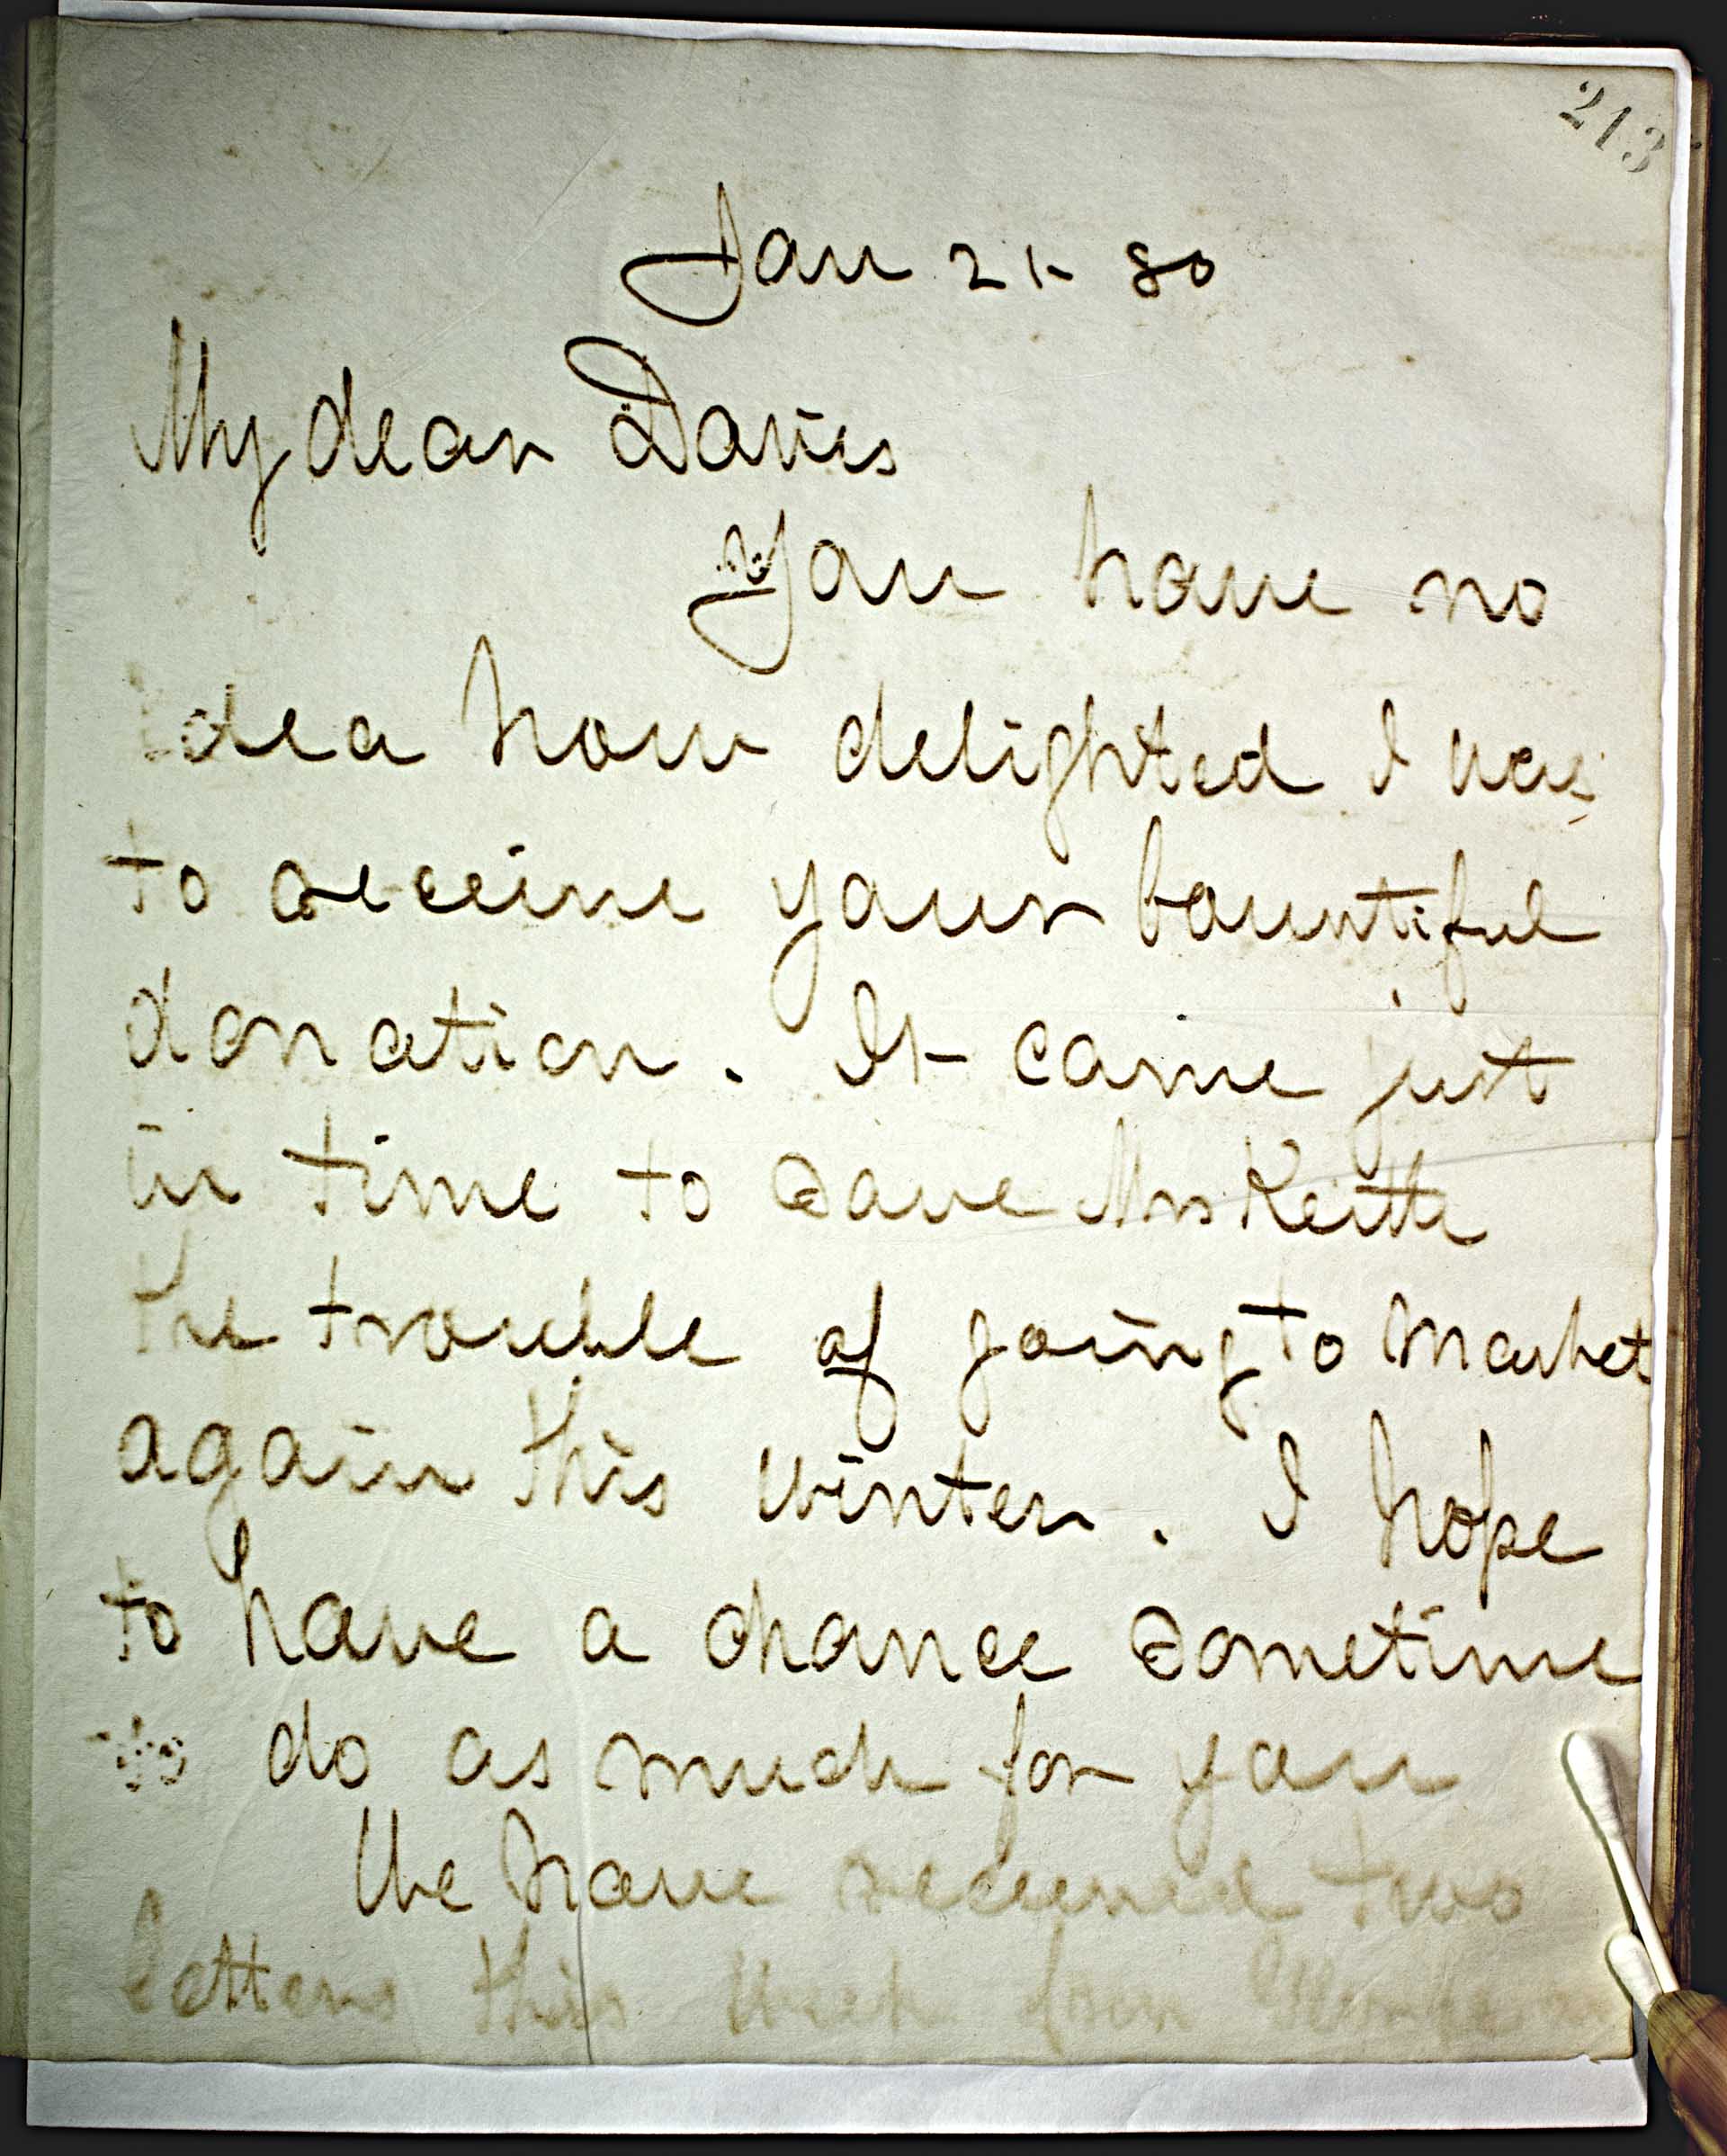 213
Jan 21 80
My dear Davis
You have no
idea how delighted I was
to receive your bountiful
donation. It came just
in time to save Mrs Keith
the trouble of going to market
again this winter. I hope
to have a chance sometime
to do as much for you
We have received two
letters this week from